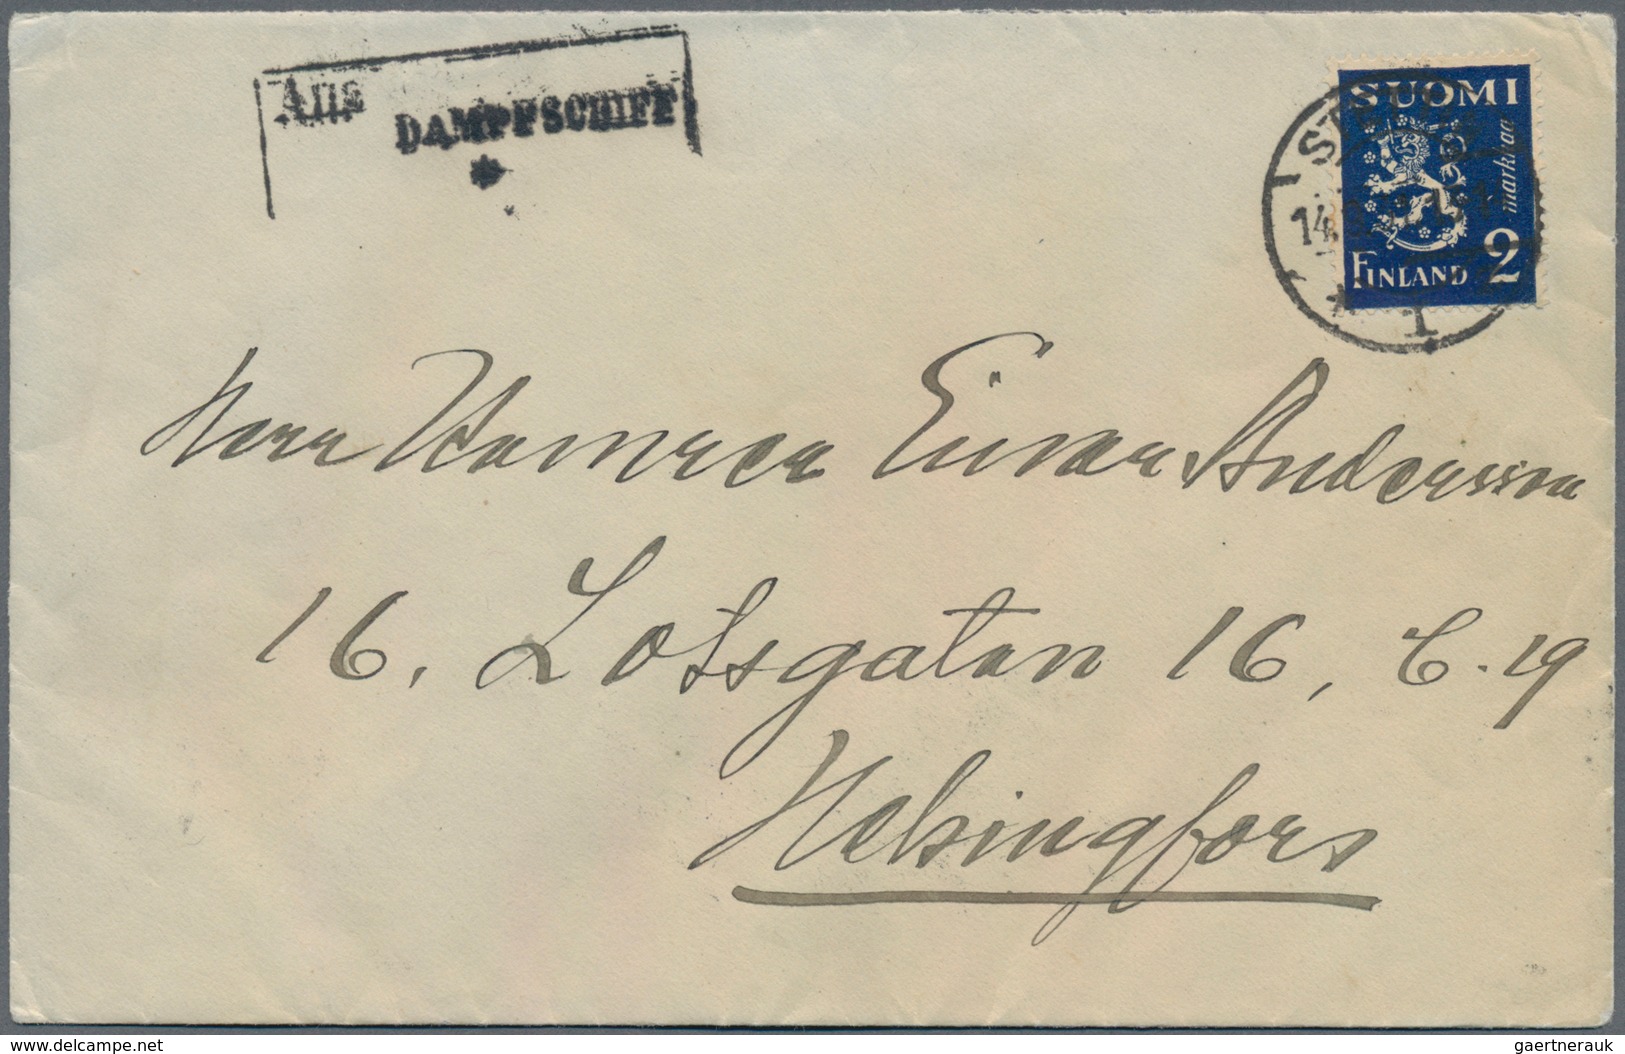 Aus
DAMPFSCHIFF
SUOMI
markkaa
FINLAND 2
1
Herr Kamrer Einar Andersson
16, Lotsgatan 16, C. 19
Helsingfors
delcampe.net
gaertnerauk